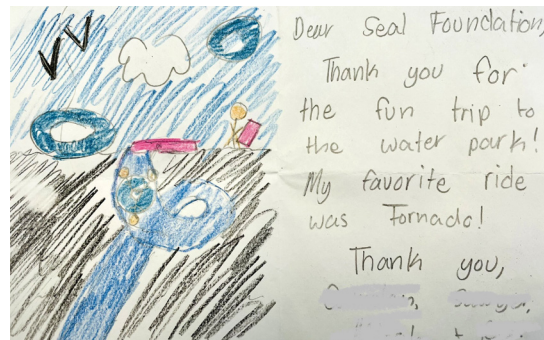 Dear Seal Foundation,
Thank you for
the fun trip to
the water park!
My favorite ride
was Tornado!
Thank you,